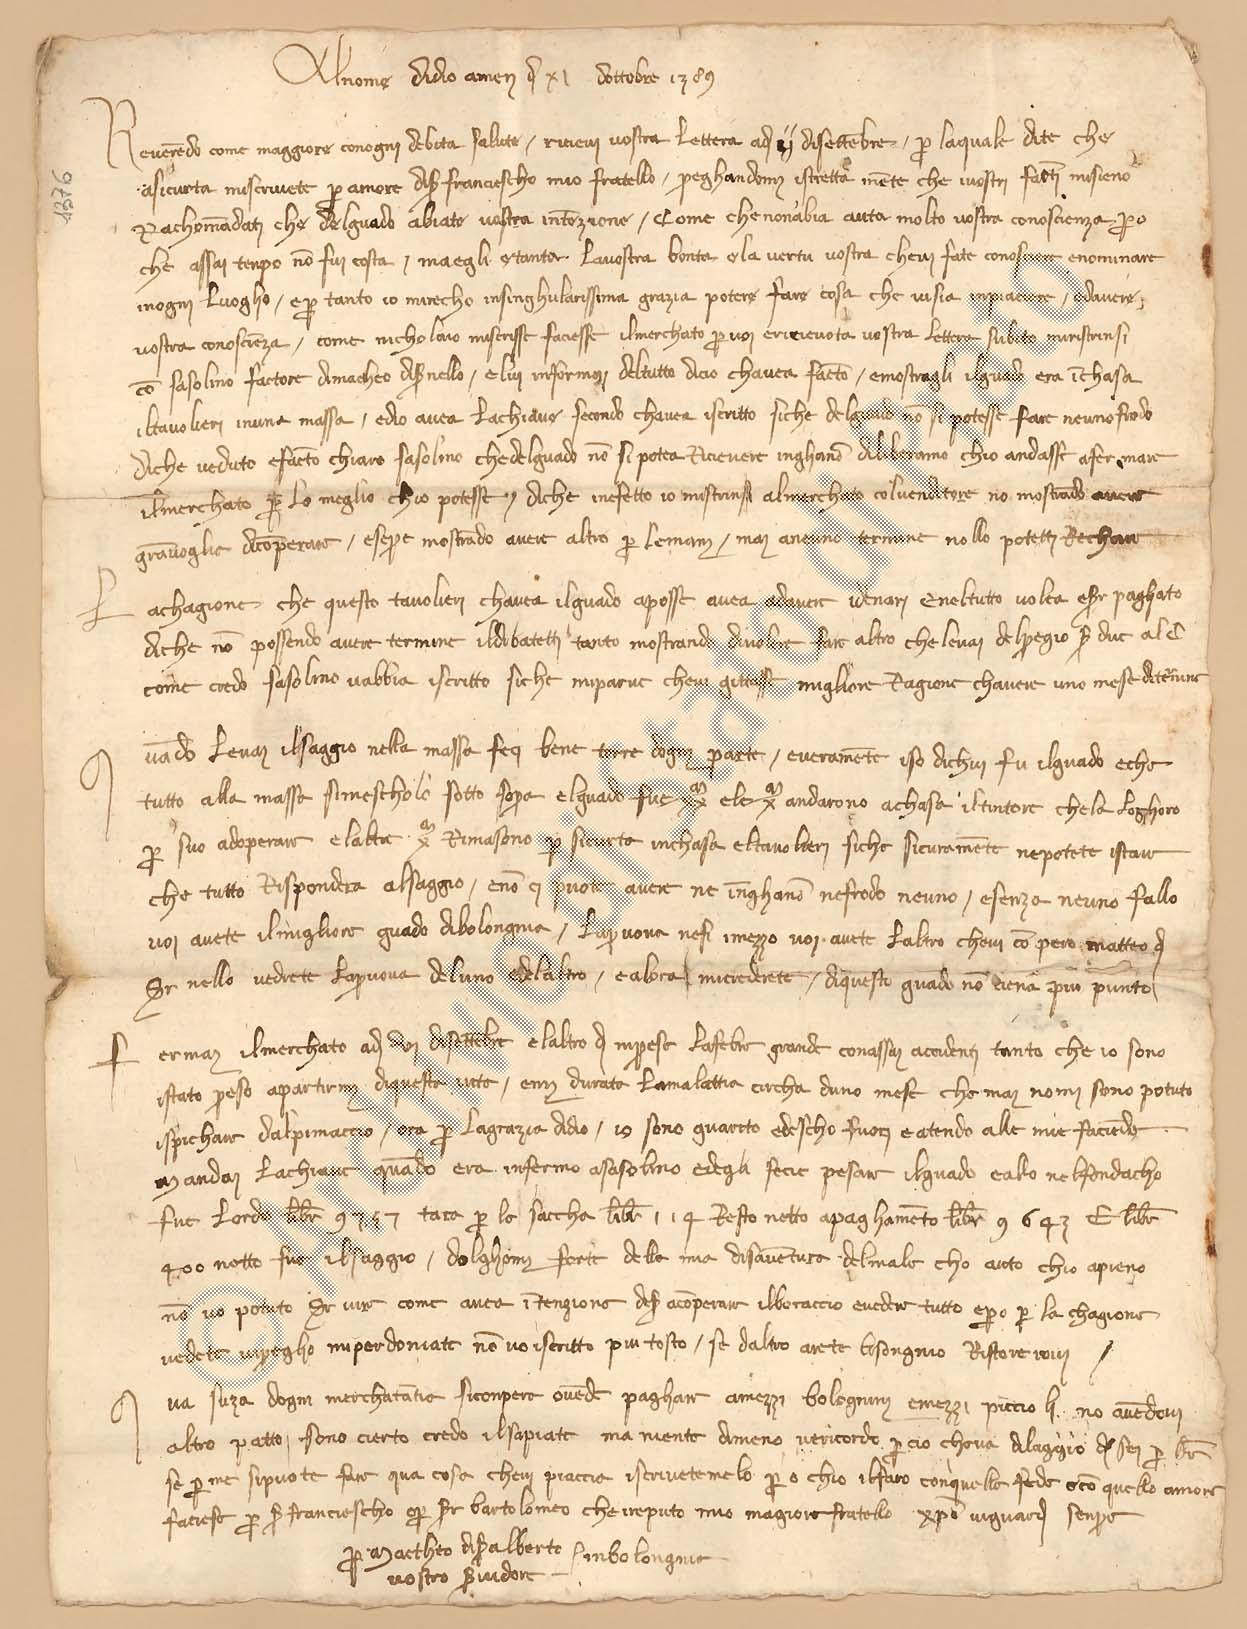 Al nome didio amen d xi dottobre 1389
Reverēdo come maggiore conogni debita salute / ricievi vostra lettera adj ij disettēbre / p laquale dite che
asicurta miscrivete p amore di s franciescho mio fratello / preghandomi istretta mēte che ivostri fatti misieno
rachomādati che delguado abiate vostra intēzione / Come che nonabia auta molto vostra conoscienza po
che assai tenpo nō fui costa / maegli tanta lavostra bonta ela vertu vostra chevi fate conosciere enominare
inogni luogho / ep tanto io mirecho insinghularissima grazia potere fare cosa che visia inpiaciere / edavere
vostra conosciēza / come nicholaio miscrisse faciesse ilmerchato p voi ericievuta vostra lettera subito miristrinsi
cō sasolino fattore dimatheo di s nello / elui informai deltutto dicio chavea fatto / emostragli ilguado era ī chasa
iltavolieri inuna massa / edio avea lachiave secondo chavea iscritto siche delguado nō si potesse fare neuno frodo
diche veduto efatto chiaro sasolino chedelguado nō si potea ricievere inghanō diliberamo chio andasse afermare
ilmerchato p lo meglio chio potesse / diche inefetto io mistrinsi almerchato colvenditore no mostrādo avere
grāvoglia dicōperare / esepe mostrādo avere altro p lemani / mai aneuno termine nollo potetti rechare
Lachagione che questo tavolieri chavea ilguado aposse avea adavere denari eneltutto volea eser paghato
diche nō possendo avere termine ildibatetti tanto mostrando divolere fare altro chelevai delpegio s due alC
come credo sasolino vabbia iscritto siche miparve chevi gittasse migliore ragione chavere uno mese ditermine
Quādo levai ilsaggio nella massa feci bene torre dogni parte / everamēte iso dichui fu ilguado eche
tutto alla massa simescholò sotto sopra elguado fue ele andarono achasa iltintore chela loghoro
p suo adoperare elaltre rimasono p sicurta inchasa eltavolieri siche sicuramēte nepotete istare
che tutto rispondera alsaggio / enō ci puote avere ne īnghanō nefrodo neuno / esenza neuno fallo
voi avete ilmigliore guado dibolongnia / lapruova nefi imezzo voi avete laltro chevi cōpero matteo d
ser nello vedrete lapruova deluno edelaltro / ealora micrederete / diquesto guado nō viena piu punto
Fermai ilmerchato adj disettēbre elaltro d miprese lafebre grande conassai acidenti tanto che io sono
istato preso apartirmi diquesta vita / emi durata lamalattia circha duno mese che mai nomi sono potuto
ispichare dalpimaccio / ora p lagrazia didio / io sono guarito edescho fuori eatendo alle mie faciēde
mandai lachiave quādo era infermo asasolino edegli fecie pesare ilguado eallo nelfondacho
fue lordo libre 9757 tara p le saccha libre 114 resto netto apaghamēto libre 9643 E libre
400 netto fue ilsaggio / dolghomi forte della mia disavētura delmale cho auto chio apieno
nō vo potuto servire come avea ītenzione acōperare ilboraccio evedere tutto epo p la chagione
vedete vipregho miperdoniate nō vo iscritto piu tosto / se daltro arete bisongnio ristorerovi /
Qua suza dogni merchatātia siconpera ovēde paghare amezzi bolognini emezzi picciolj no avēdovi
altro patto / sono cierto credo ilsapiate ma niente dimeno vericordo p cio cheva dilaggio
se p me sipuote fare qua cosa chevi piaccia iscrivetemelo p o chio ilfaro conquella fede ecō quello amore
faciese p s franciescho op ser bartolomeo cheireputo mio magiore fratello xpo viguardj senpre
p Mactheo di s alberto / inbolongnia
vostro servidore